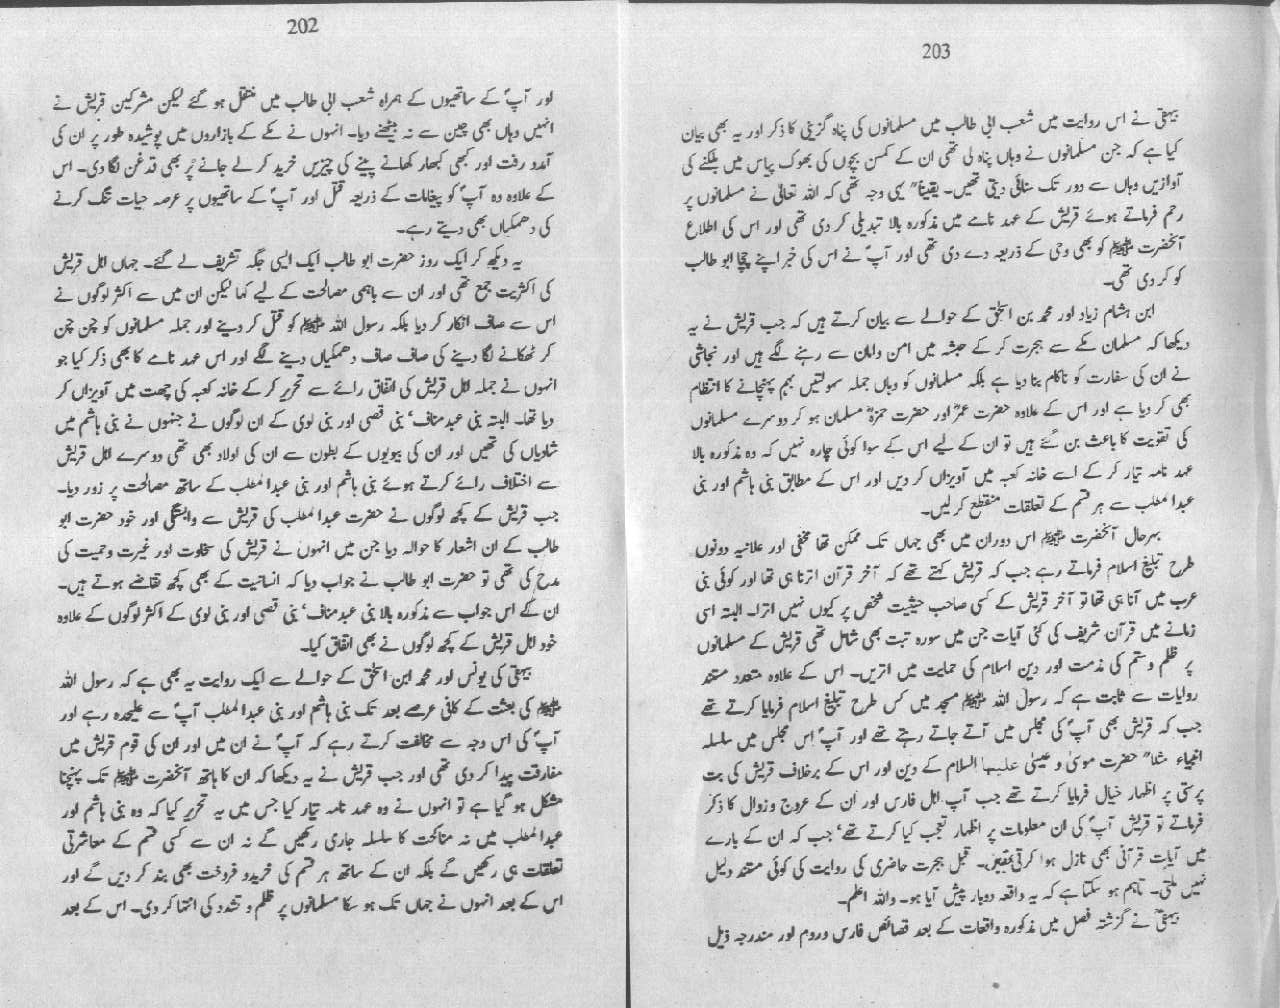 202
اور آپؐ کے ساتھیوں کے ہمراہ شعب ابی طالب میں منتقل ہو گئے لیکن مشرکین قریش نے
انہیں وہاں بھی چین سے نہ بیٹھنے دیا۔ انہوں نے مکے کے بازاروں میں پوشیدہ طور پر ان کی
آمدو رفت اور کبھی کبھار کھانے پینے کی چیزیں خرید کر لے جانے پر بھی قدغن لگا دی۔ اس
کے علاوہ وہ آپؐ کو پیغامات کے ذریعہ قتل اور آپؐ کے ساتھیوں پر عرصہ حیات تنگ کرنے
کی دھمکیاں بھی دیتے رہے۔
یہ دیکھ کر ایک روز حضرت ابو طالب ایک ایسی جگہ تشریف لے گئے۔ جہاں اہل قریش
کی اکثریت جمع تھی اور ان سے باہمی مصالحت کے لیے کہا لیکن ان میں سے اکثر لوگوں نے
اس سے صاف انکار کر دیا بلکہ رسول اللہ ﷺ کو قتل کر دینے اور جملہ مسلمانوں کو چن چن
کر ٹھکانے لگا دینے کی صاف صاف دھمکیاں دینے لگے اور اس عہد نامے کا بھی ذکر کیا جو
انہوں نے جملہ اہل قریش کی اتفاق رائے سے تحریر کر کے خانہ کعبہ کی چھت میں آویزاں کر
دیا تھا۔ البتہ بنی عبد مناف، بنی قصی اور بنی لوی کے ان لوگوں نے جنہوں نے بنی ہاشم میں
شادیاں کی تھیں اور ان کی بیویوں کے بطون سے ان کی اولاد بھی تھی دوسرے اہل قریش
سے اختلاف رائے کرتے ہوئے بنی ہاشم اور بنی عبدالمطلب کے ساتھ مصالحت پر زور دیا۔
جب قریش کے کچھ لوگوں نے حضرت عبدالمطلب کی قریش سے وابستگی اور خود حضرت ابو
طالب کے ان اشعار کا حوالہ دیا جن میں انہوں نے قریش کی سخاوت اور غیرت و حمیت کی
مدح کی تھی تو حضرت ابو طالب نے جواب دیا کہ انسانیت کے بھی کچھ تقاضے ہوتے ہیں۔
ان کے اس جواب سے مذکورہ بالا بنی عبد مناف، بنی قصی اور بنی لوی کے اکثر لوگوں کے علاوہ
خود اہل قریش کے کچھ لوگوں نے بھی اتفاق کیا۔
بیہقی کی یونس اور محمد ابن اسحٰق کے حوالے سے ایک روایت یہ بھی ہے کہ رسول اللہ
ﷺ کی بعثت کے کافی عرصے بعد تک بنی ہاشم اور بنی عبدالمطلب آپؐ سے علیحدہ رہے اور
آپؐ کی اس وجہ سے مخالفت کرتے رہے کہ آپؐ نے ان میں اور ان کی قوم قریش میں
مفارقت پیدا کر دی تھی اور جب قریش نے یہ دیکھا کہ ان کا ہاتھ آنحضرت ﷺ تک پہنچنا
مشکل ہو گیا ہے تو انہوں نے وہ عہد نامہ تیار کیا جس میں یہ تحریر کیا کہ وہ بنی ہاشم اور
عبدالمطلب میں نہ مناکحت کا سلسلہ جاری رکھیں گے نہ ان سے کسی قسم کے معاشرتی
تعلقات ہی رکھیں گے بلکہ ان کے ساتھ ہر قسم کی خریدو فروخت بھی بند کر دیں گے اور
اس کے بعد انہوں نے جہاں تک ہو سکا مسلمانوں پر ظلم و تشدد کی انتہا کر دی۔ اس کے بعد
203
بیہقی نے اس روایت میں شعب ابی طالب میں مسلمانوں کی پناہ گزینی کا ذکر اور یہ بھی بیان
کیا ہے کہ جن مسلمانوں نے وہاں پناہ لی تھی ان کے کمسن بچوں کی بھوک پیاس میں بلکنے کی
آوازیں وہاں سے دور تک سنائی دیتی تھیں۔ یقیناً یہی وجہ تھی کہ اللہ تعالیٰ نے مسلمانوں پر
رحم فرماتے ہوئے قریش کے عہد نامے میں مذکورہ بالا تبدیلی کر دی تھی اور اس کی اطلاع
آنحضرت ﷺ کو بھی وحی کے ذریعہ دے دی تھی اور آپؐ نے اس کی خبر اپنے چچا ابو طالب
کو کر دی تھی۔
ابن ہشام زیاد اور محمد بن اسحٰق کے حوالے سے بیان کرتے ہیں کہ جب قریش نے یہ
دیکھا کہ مسلمان مکے سے ہجرت کر کے حبشہ میں امن و امان سے رہنے لگے ہیں اور نجاشی
نے ان کی سفارت کو ناکام بنا دیا ہے بلکہ مسلمانوں کو وہاں جملہ سہولتیں بہم پہنچانے کا انتظام
بھی کر دیا ہے اور اس کے علاوہ حضرت عمرؓ اور حضرت حمزہؓ مسلمان ہو کر دوسرے مسلمانوں
کی تقویت کا باعث بن گئے ہیں تو ان کے لیے اس کے سوا کوئی چارہ نہیں کہ وہ مذکورہ بالا
عہد نامہ تیار کر کے اسے خانہ کعبہ میں آویزاں کر دیں اور اس کے مطابق بنی ہاشم اور بنی
عبدالمطلب سے ہر قسم کے تعلقات منقطع کر لیں۔
بہرحال آنحضرت ﷺ اس دوران میں بھی جہاں تک ممکن تھا مخفی اور علانیہ دونوں
طرح تبلیغ اسلام فرماتے رہے جب کہ قریش کہتے تھے کہ آخر قرآن اترنا ہی تھا اور کوئی نبی
عرب میں آنا ہی تھا تو آخر قریش کے کسی صاحب حیثیت شخص پر کیوں نہیں اترا۔ البتہ اسی
زمانے میں قرآن شریف کی کئی آیات جن میں سورہ تبت بھی شامل تھی قریش کے مسلمانوں
پر ظلم و ستم کی مذمت اور دین اسلام کی حمایت میں اتریں۔ اس کے علاوہ متعدد مستند
روایات سے ثابت ہے کہ رسول اللہ ﷺ مسجد میں کس طرح تبلیغ اسلام فرمایا کرتے تھے
جب کہ قریش بھی آپؐ کی مجلس میں آتے جاتے رہتے تھے اور آپؐ اس مجلس میں سلسلہ
انبیاء مثلاً حضرت موسیٰ و عیسیٰ علیہما السلام کے دین اور اس کے برخلاف قریش کی بت
پرستی پر اظہار خیال فرمایا کرتے تھے جب آپ اہل فارس اور ان کے عروج و زوال کا ذکر
فرماتے تو قریش آپؐ کی ان معلومات پر اظہار تعجب کیا کرتے تھے، جب کہ ان کے بارے
میں آیات قرآنی بھی نازل ہوا کرتی تھیں۔ قبل ہجرت حاضری کی روایت کی کوئی مستند دلیل
نہیں ملتی۔ تاہم ہو سکتا ہے کہ یہ واقعہ دوبار پیش آیا ہو۔ واللہ اعلم۔
بیہقیؒ نے گزشتہ فصل میں مذکورہ واقعات کے بعد قصائص فارس و روم اور مندرجہ ذیل